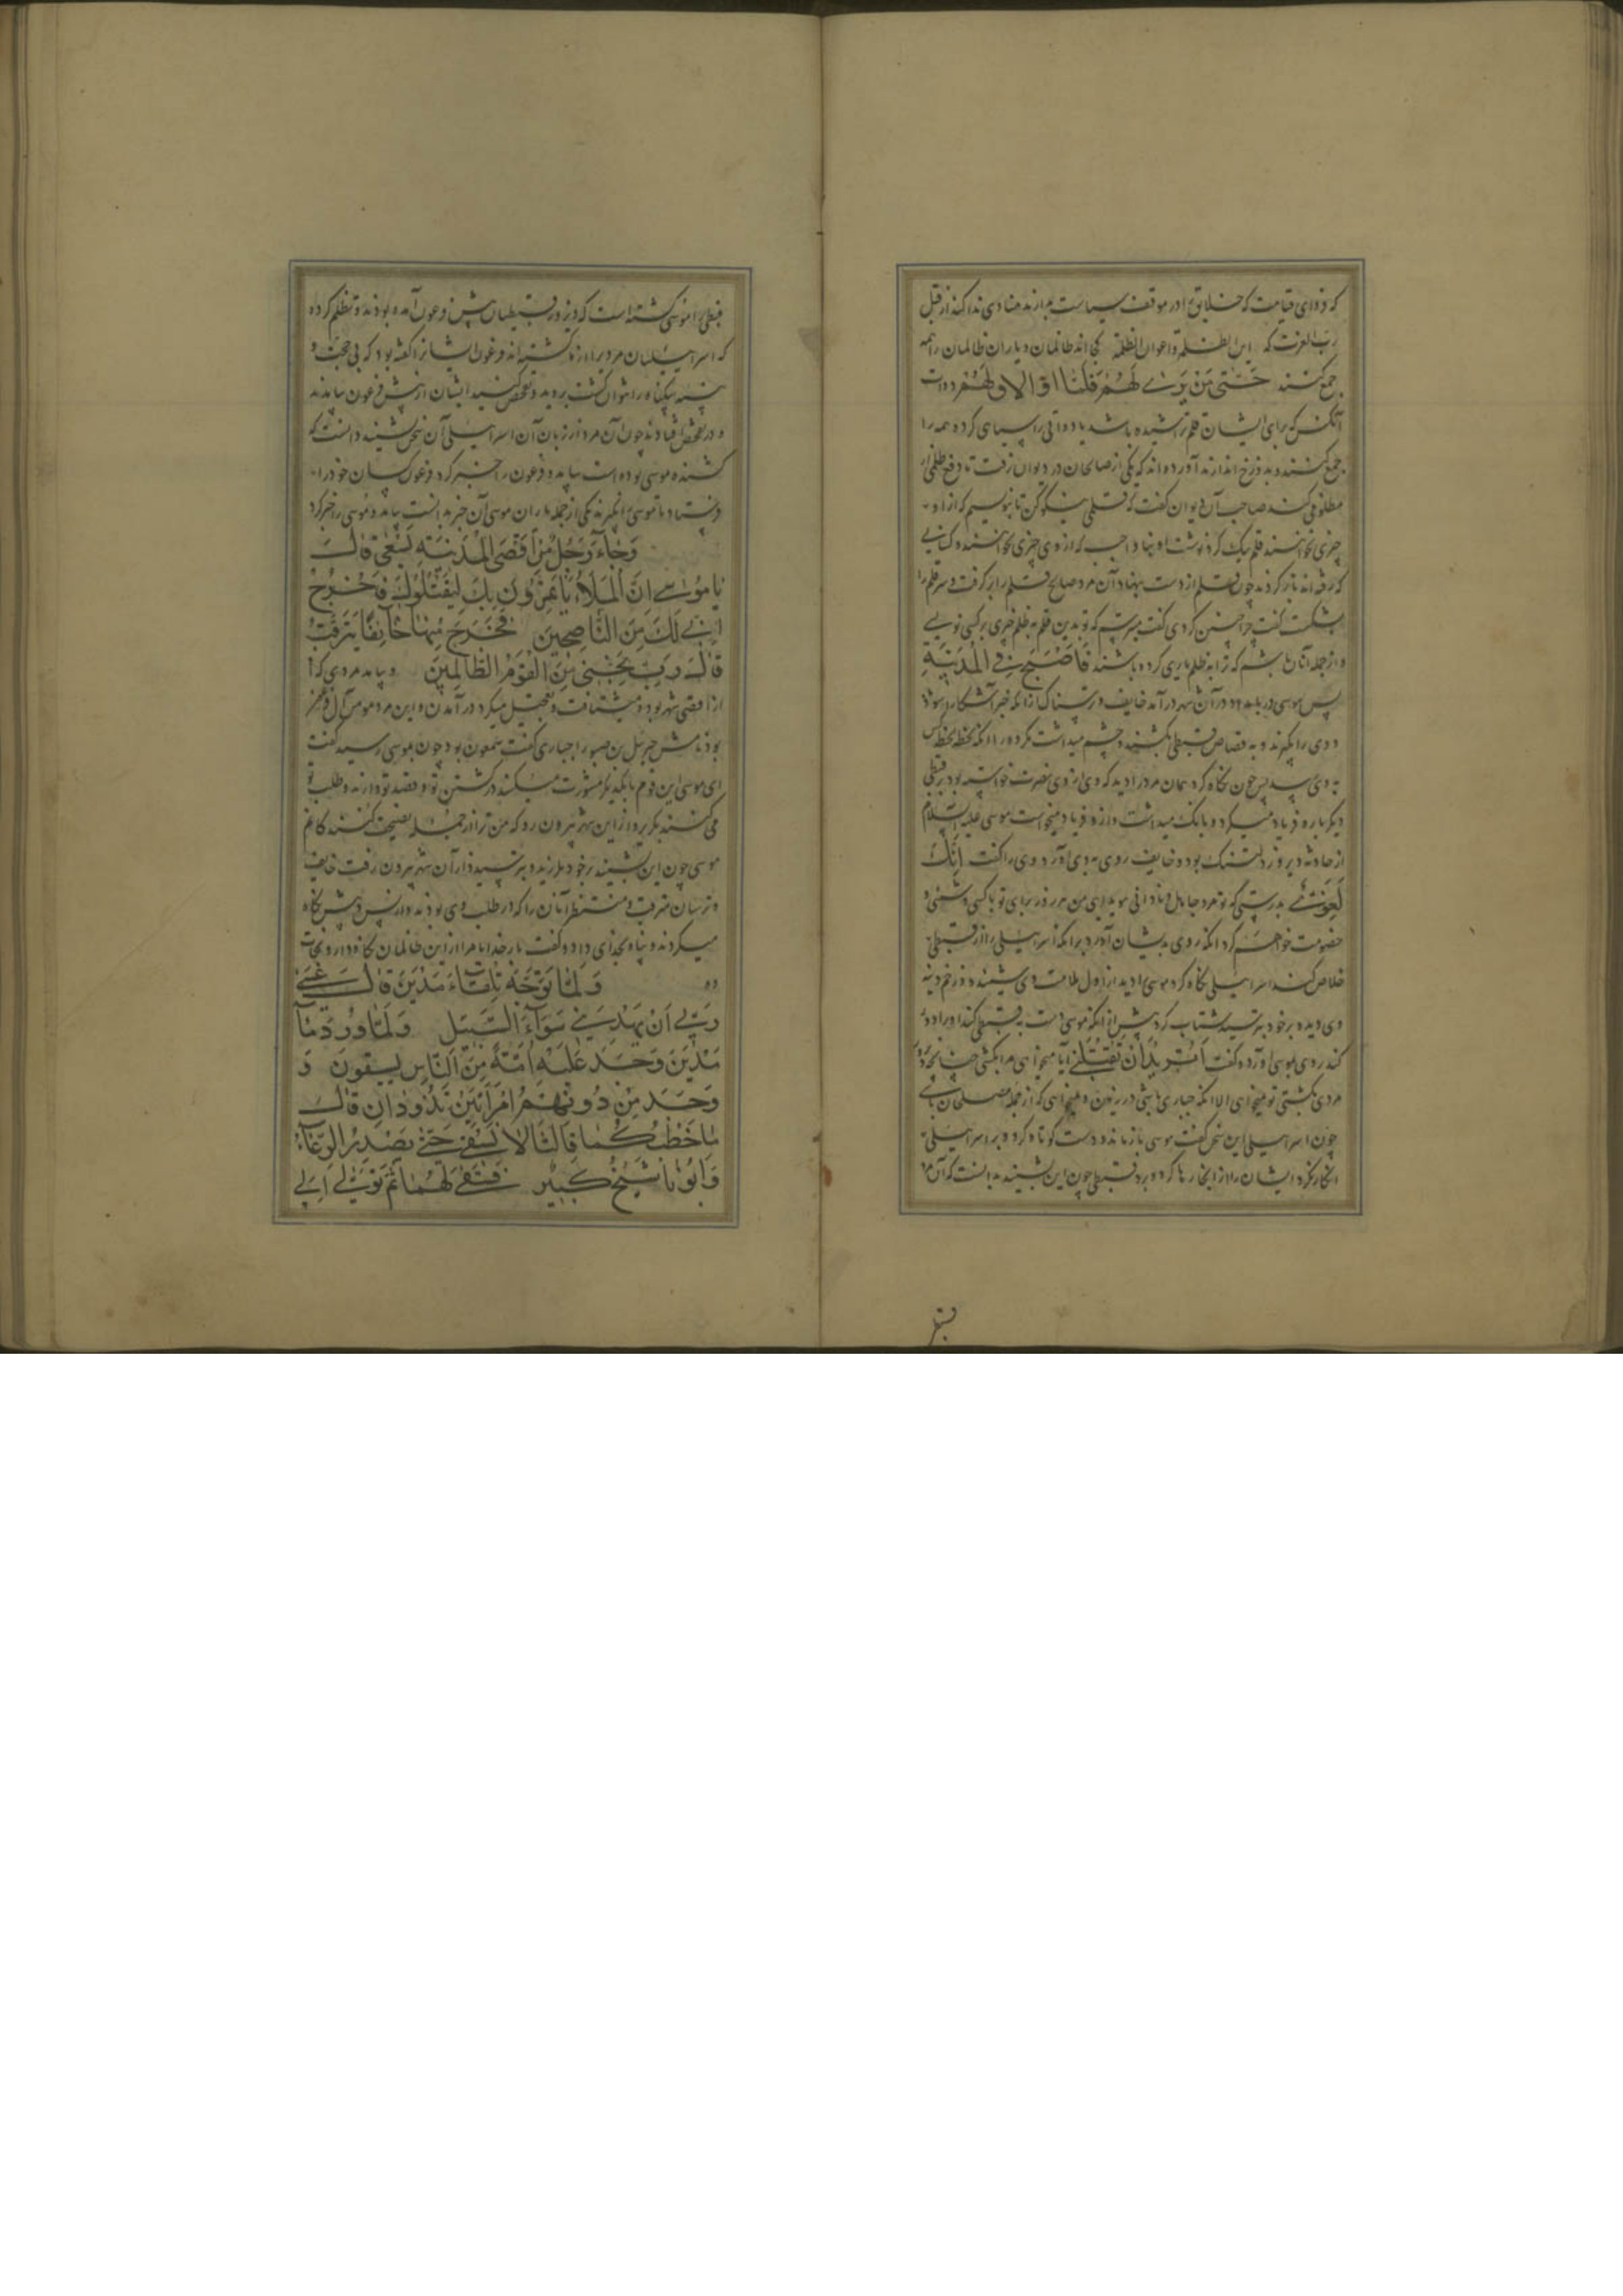 که فردای قیامت که خلایق را در موقف سیاست بدارند منادی ندا کند از قبل
رب العزت که این الظلمة واعوان الظلمة کجااند ظالمان و یاران ظالمان را همه
جمع کنند حَتّی مَنْ بَرٰی لَهُمْ قَلَمًا اَوْ اَلاقَ لَهُمْ دوات
آنکس که برای ایشان قلم تراشیده باشد یا دواتی را سیاهی کرده همه را
جمع کنند و بدوزخ اندازند آورده اند که یکی از صالحان در دیوان رفت تا دفع ظلمی از
مظلومی کند صاحب آن دیوان گفت که قلمی نیکو کن تا بنویسم که از او
چیزی نخواهند قلم نیک کرد نوشت او بنهاد که از وی چیزی نخواهند و کتابی
که باز کردند چون قلم از دست بنهاد آن مرد صالح قلم را برگرفت و سر قلم را
بشکست گفت چرا چنین کردی گفت میترسم که تو بدین قلم به ظلم چیزی بر کسی نویسی
و از جمله آنان باشم که ترا به ظلم یاری کرده باشند فَاَصْبَحَ فِی الْمَدینَةِ
پس موسی در بامداد در آن شهر در آمد خایف و ترسناک از آنکه خبر آشکارا شود
و وی را بگیرند و به قصاص قبطی بکشند و چشم میداشت لحظه بلحظه کس
به وی رسد پس چون نگاه کرد همان مرد را دید که دی از وی نصرت خواسته بود بر قبطی
دیگر باره فریاد میکرد و بانگ میداشت و از او فریاد میخواست موسی علیه السلام
از حادثه دیروز دلتنک بود و خایف روی به وی آورد و وی را گفت اِنَّكَ
لَغَوِیٌّ بدرستی که تو مرد جاهل و نادانی هر روز برای تو با کسی دشمنی و
خصومت خواهم کرد آنکه روی بدیشان آورد برای آنکه اسراییلی را از قبطی
خلاص کند اسراییلی نگاه کرد موسی را دید از اول ملامت وی شنیده
وی دیده بر خود بترسید شتاب کرد پیش از آنکه موسی دست به قبطی کند
کند روی بموسی آورد و گفت اَتُریدُ اَنْ تَقْتُلَنی آیا میخواهی مرا بکشی چنانچه
مردی بکشتی تو نمیخواهی الا آنکه جباری باشی در زمین و نمیخواهی که از جمله مصلحان باشی
چون اسراییلی این سخن گفت موسی باز ماند و دست کوتاه کرد و بر اسراییلی
انکار کرد ایشان را رها کرد و برفت قبطی چون این بشنید بدانست که آن مرد
قبطی را موسی کشته است که دیروز قبطیان پیش فرعون آمده بودند و تظلم کرده
که اسراییلیان مردی را از ما کشته اند فرعون ایشانرا گفته بود که بی حجت و
بینه بیگناه را نتوان کشت بروید و تفحص کنید ایشان از پیش فرعون بیامدند
و در تفحص افتادند چون آن مرد از زبان آن اسراییلی آن سخن بشنید دانست که
کشنده موسی بوده است بیامد و فرعون را خبر کرد فرعون کسان خود را
فرستاد تا موسی را بگیرند یکی از جمله یاران موسی آن خبر بدانست بیامد و موسی را خبر کرد
وَجٰاءَ رَجُلٌ مِنْ اَقْصَی الْمَدینَةِ یَسْعٰی قٰالَ
یٰا مُوسٰی اِنَّ الْمَلَاَ یَاْتَمِرُونَ بِكَ لِیَقْتُلُوكَ فَاخْرُجْ
اِنّی لَكَ مِنَ النّٰاصِحینَ فَخَرَجَ مِنْهٰا خٰائِفًا یَتَرَقَّبُ
قٰالَ رَبِّ نَجِّنی مِنَ الْقَوْمِ الظّٰالِمینَ و بیامد مردی که
از اقصی شهر بود و میشتافت و تعجیل میکرد در آمدن و این مرد مومن آل فرعون
بود نامش حزبیل بن صبورا جباری گفت سمعون بود چون بموسی رسید گفت
ای موسی این قوم با یکدیگر مشورت میکنند در کشتن تو و قصد تو دارند و طلب تو
می کنند بگریز و از این شهر بیرون رو که من ترا از جمله نصیحت کنندگانم
موسی چون این بشنید بر خود بلرزید و بترسید و از آن شهر بیرون رفت خایف
و ترسان میرفت و منتظر آنان را که در طلب وی بودند و از پس و پیش نگاه
میکرد و پناه بخدای داد و گفت بار خدایا مرا از این ظالمان نگاه دار و نجات
ده وَلَمّٰا تَوَجَّهَ تِلْقٰاءَ مَدْیَنَ قٰالَ عَسٰی
رَبّی اَنْ یَهْدِیَنی سَوٰاءَ السَّبیلِ وَلَمّٰا وَرَدَ مٰاءَ
مَدْیَنَ وَجَدَ عَلَیْهِ اُمَّةً مِنَ النّٰاسِ یَسْقُونَ وَ
وَجَدَ مِنْ دُونِهِمُ امْرَاَتَیْنِ تَذُودٰانِ قٰالَ
مٰا خَطْبُكُمٰا قٰالَتٰا لاٰ نَسْقی حَتّٰی یُصْدِرَ الرِّعٰاءُ
وَاَبُونٰا شَیْخٌ كَبیرٌ فَسَقٰی لَهُمٰا ثُمَّ تَوَلّٰی اِلَی